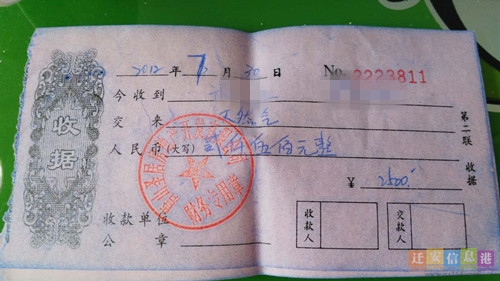 2012 年 7 月 30 日 No. 2223811
今收到
交 来 天然气
人民币(大写) 贰仟伍佰元整
¥ 2500.
收据
第二联 收据
收款单位
公 章
收款人
交款人
财务专用章
迁安信息港